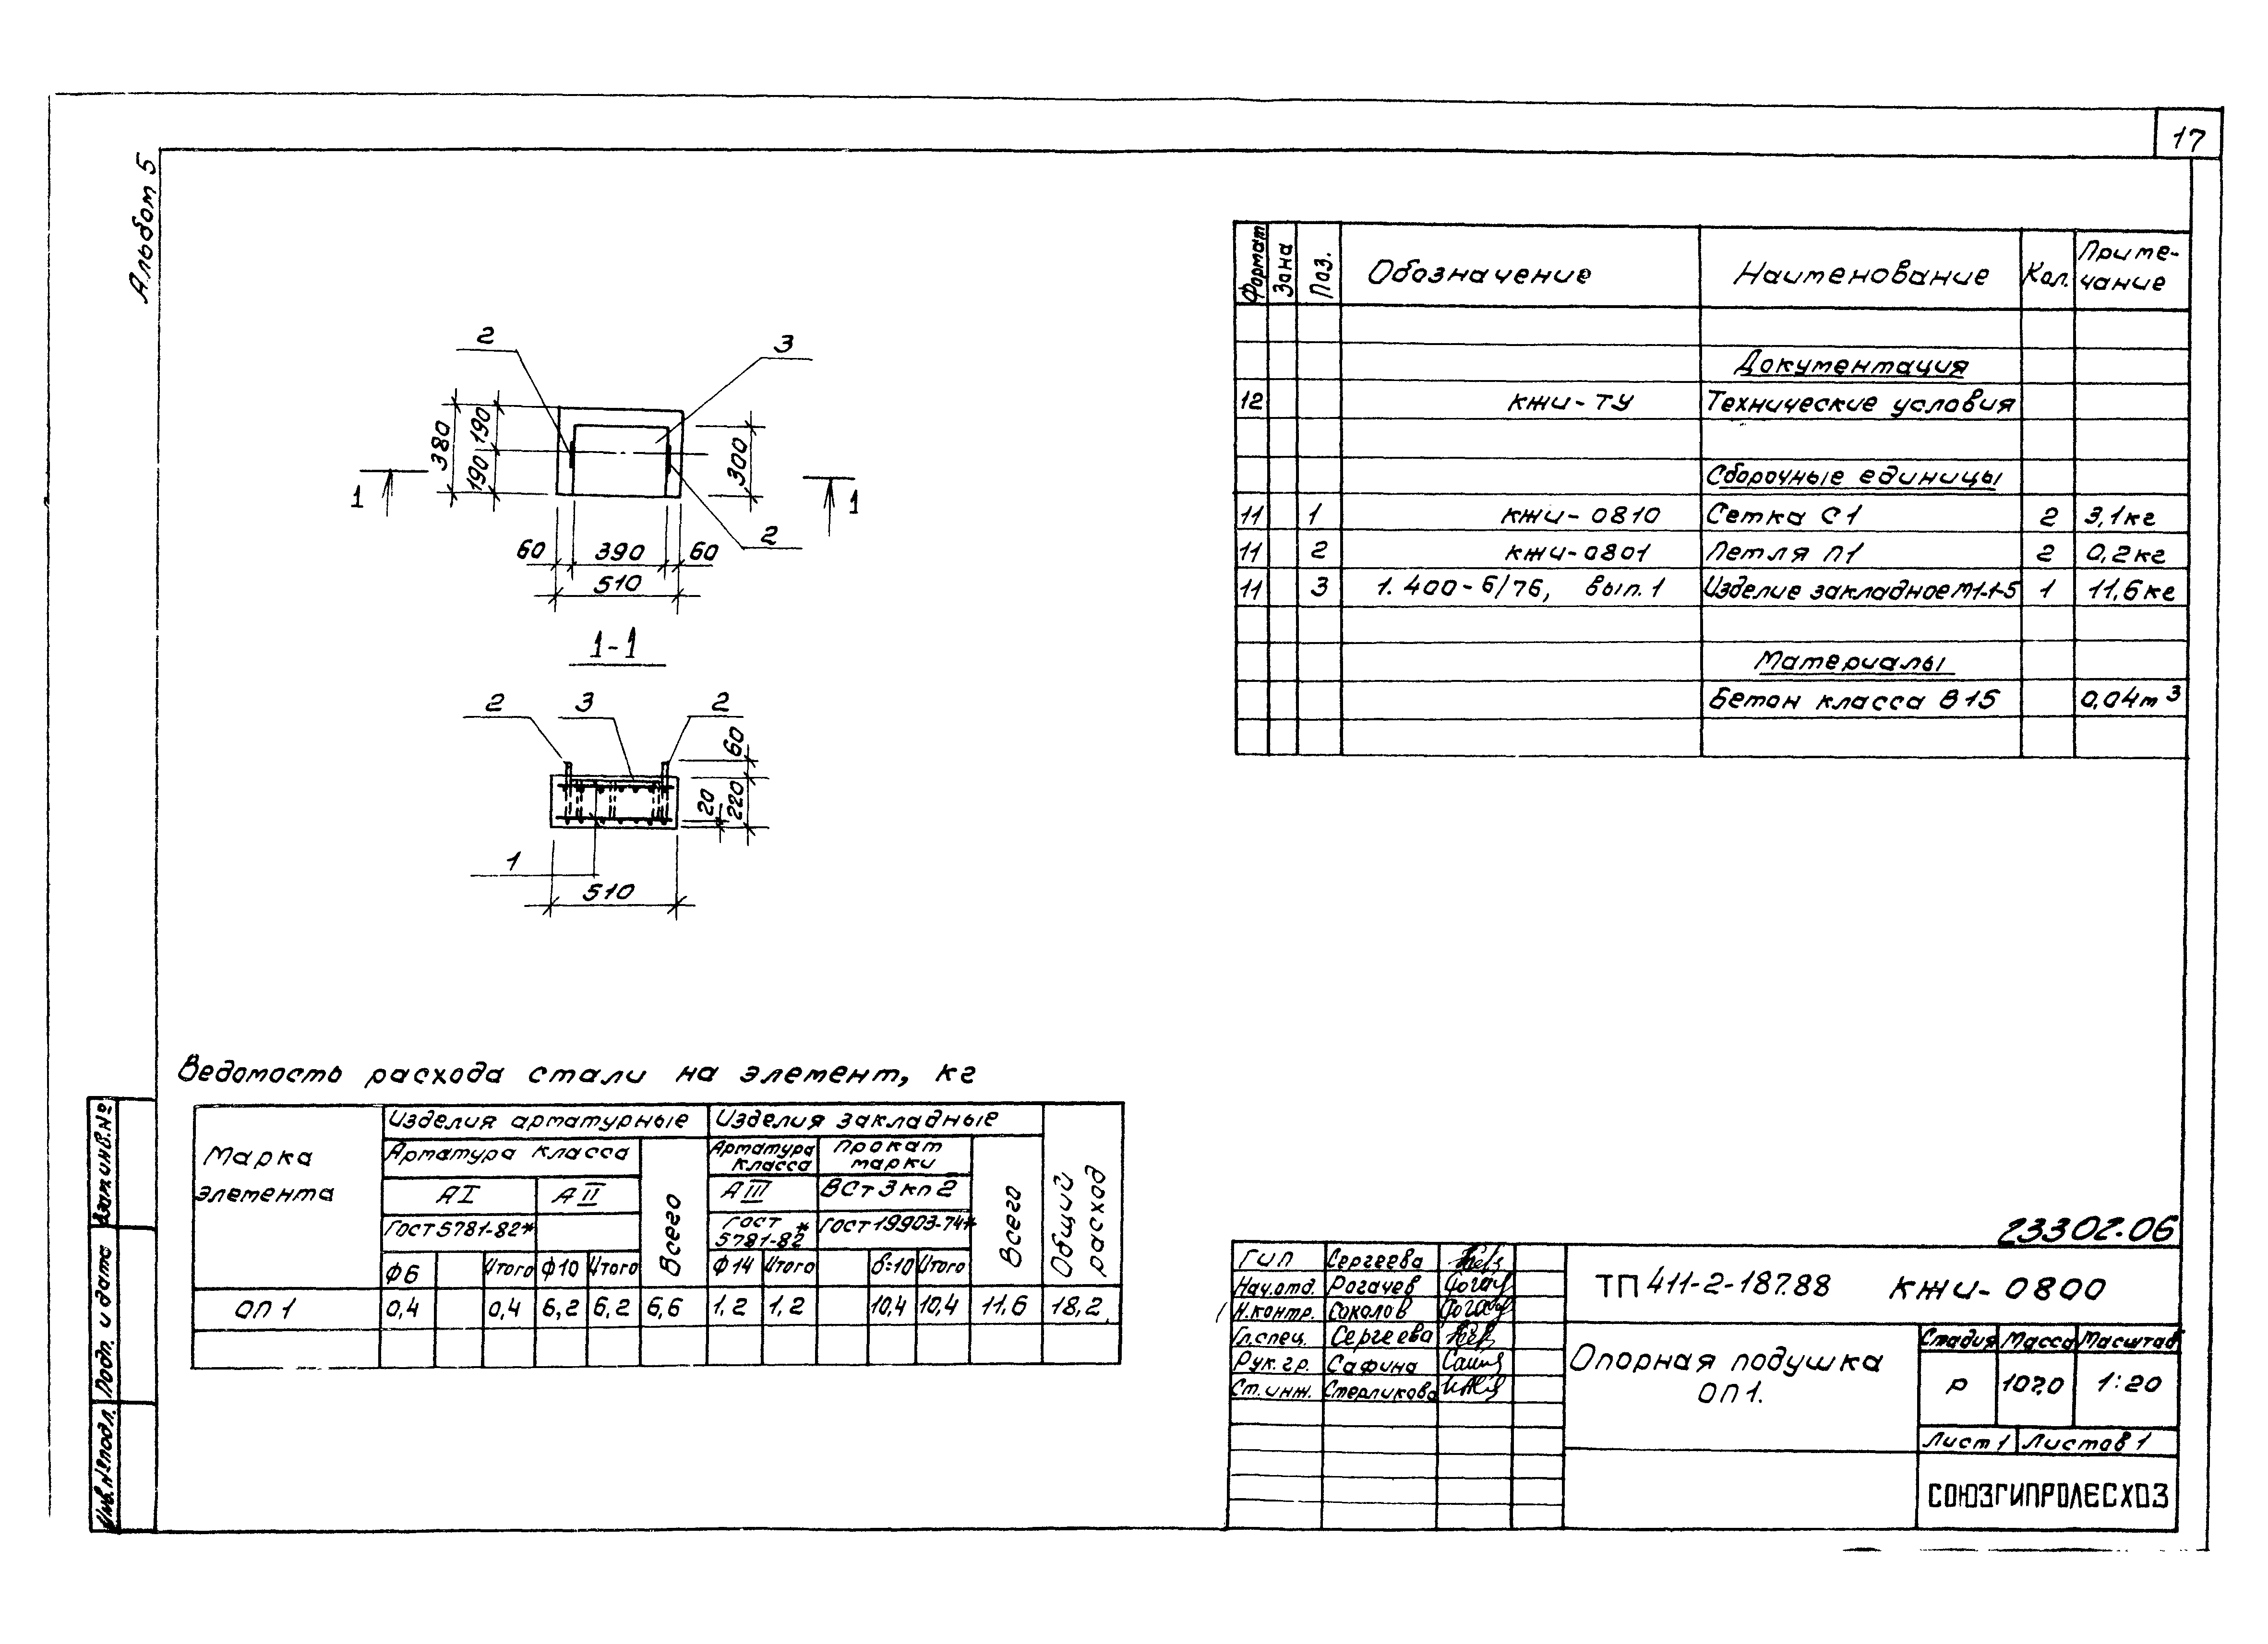 17
Альбом 5
2
3
380
190
190
300
1
1
2
60
390
60
510
1-1
2
3
2
60
20
220
1
510
Формат
Зона
Поз.
Обозначение
Наименование
Кол.
Приме-
чание
Документация
12 КЖИ-ТУ Технические условия
Сборочные единицы
11 1 КЖИ-0810 Сетка С1 2 3,1кг
11 2 КЖИ-0801 Петля П1 2 0,2кг
11 3 1.400-6/76, вып.1 Изделие закладное М1-1-5 1 11,6кг
Материалы
Бетон класса В15 0,04м³
Ведомость расхода стали на элемент, кг
Марка
элемента
Изделия арматурные
Изделия закладные
Арматура класса
Арматура
класса
Прокат
марки
АI
АII
АIII
ВСт3кп2
ГОСТ5781-82*
ГОСТ
5781-82*
ГОСТ19903-74*
Ф6 Итого Ф10 Итого Всего Ф14 Итого δ=10 Итого Всего
Общий
расход
ОП1 0,4 0,4 6,2 6,2 6,6 1,2 1,2 10,4 10,4 11,6 18,2
Взам.инв.№
Подп. и дата
Инв.№подл.
23302-06
ГИП Сергеева
Нач.отд. Рогачев
Н.контр. Соколов
Гл.спец. Сергеева
Рук.гр. Сафина
Ст.инж. Стерликова
ТП 411-2-187.88 КЖИ-0800
Опорная подушка
ОП1.
Стадия Масса Масштаб
Р 107.0 1:20
Лист 1 Листов 1
СОЮЗГИПРОЛЕСХОЗ